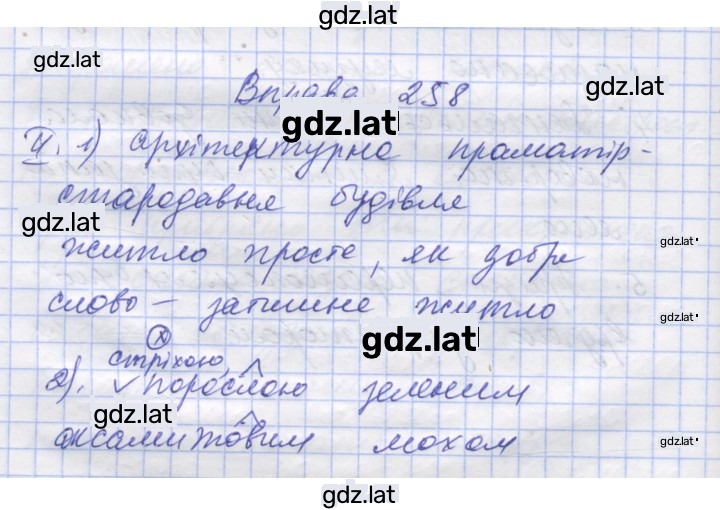 gdz.lat
gdz.lat
gdz.lat
Вправа 258
gdz.lat
ІІ. 1) архітектурна праматір -
стародавня будівля
gdz.lat
житло просте, як добре
gdz.lat
слово - затишне житло
gdz.lat
gdz.lat
х
стріхою,
2). ✓порослою зеленим
gdz.lat
оксамитовим мохом
gdz.lat
gdz.lat